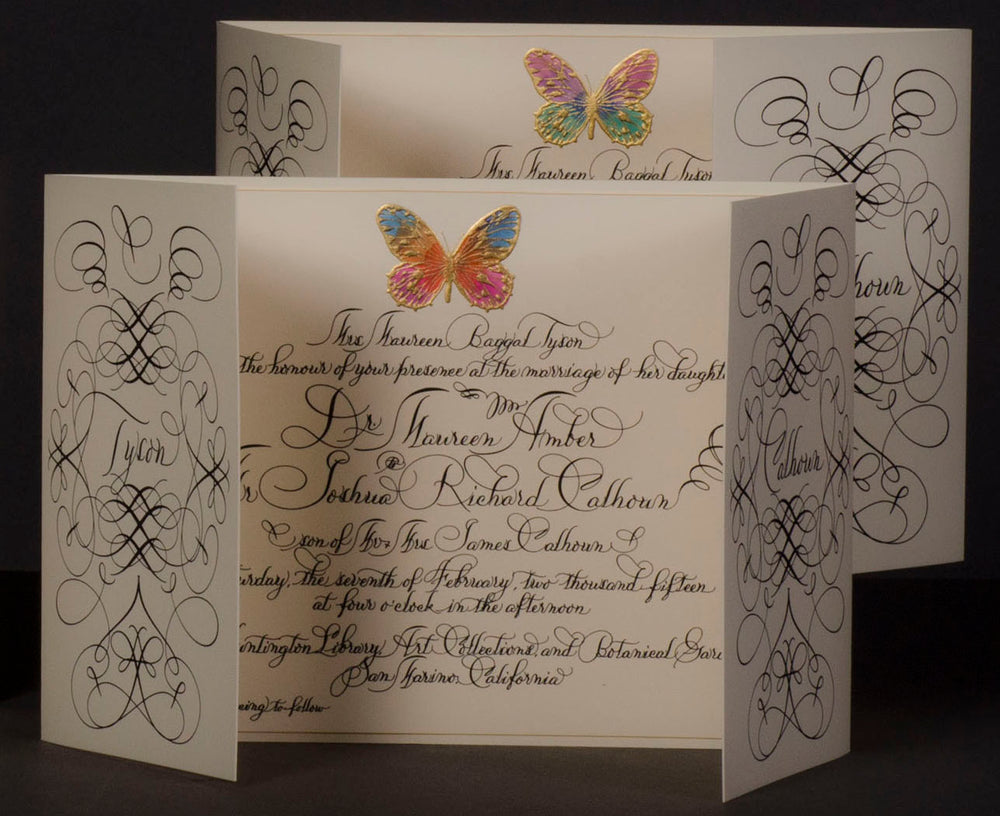 Mrs Maureen Baggal Tyson
houn
Mrs Maureen Baggal Tyson
the honour of your presence at the marriage of her daught
Dr. Maureen Amber
to
r Joshua Richard Calhoun
son of Mr & Mrs James Calhoun
urday, the seventh of February, two thousand fifteen
at four o'clock in the afternoon
untington Library, Art Collections, and Botanical Gard
San Marino, California
cing to follow
Tyson
Calhoun